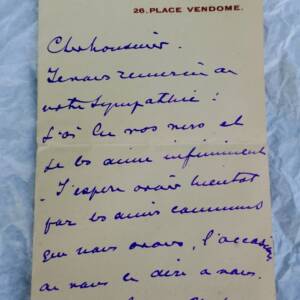 26, PLACE VENDOME.
Cher monsieur.
Je vous remercie de
votre sympathie :
J'ai lu vos vers et
je les aime infiniment
- J'espère avoir bientôt
par les amis communs
que nous avons, l'occasion
de vous le dire